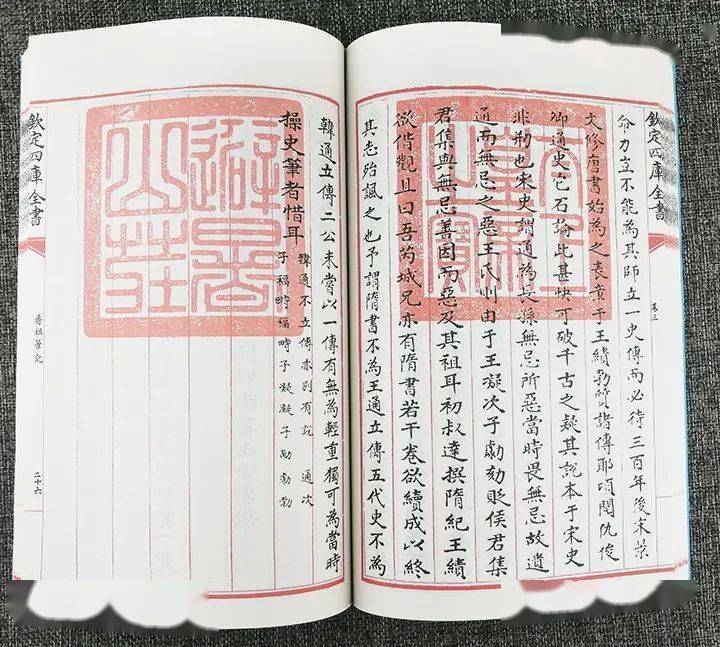 欽定四庫全書
卷三
命力豈不能為其師立一史傳而必待三百年後宋景
文修唐書始為之表章于王績勃質諸傳耶頃閱仇俊
卿通史它石論此甚快可破千古之疑其說本于宋史
非刱也宋史謂通為長孫無忌所惡當時畏無忌故遺
通而無忌之惡王氏則由于王凝次子勮劾貶侯君集
君集與無忌善因而惡及其祖耳初叔達撰隋紀王績
欲借觀且曰吾芮城兄亦有隋書若干卷欲續成以終
其志殆諷之也予謂隋書不為王通立傳五代史不為
韓通立傳二公未嘗以一傳有無為輕重獨可為當時
操史筆者惜耳
韓通不立傳亦別有說 通次
子福畤福畤子凝凝子勮勃
避暑山莊
欽定四庫全書
香祖筆記
二十六